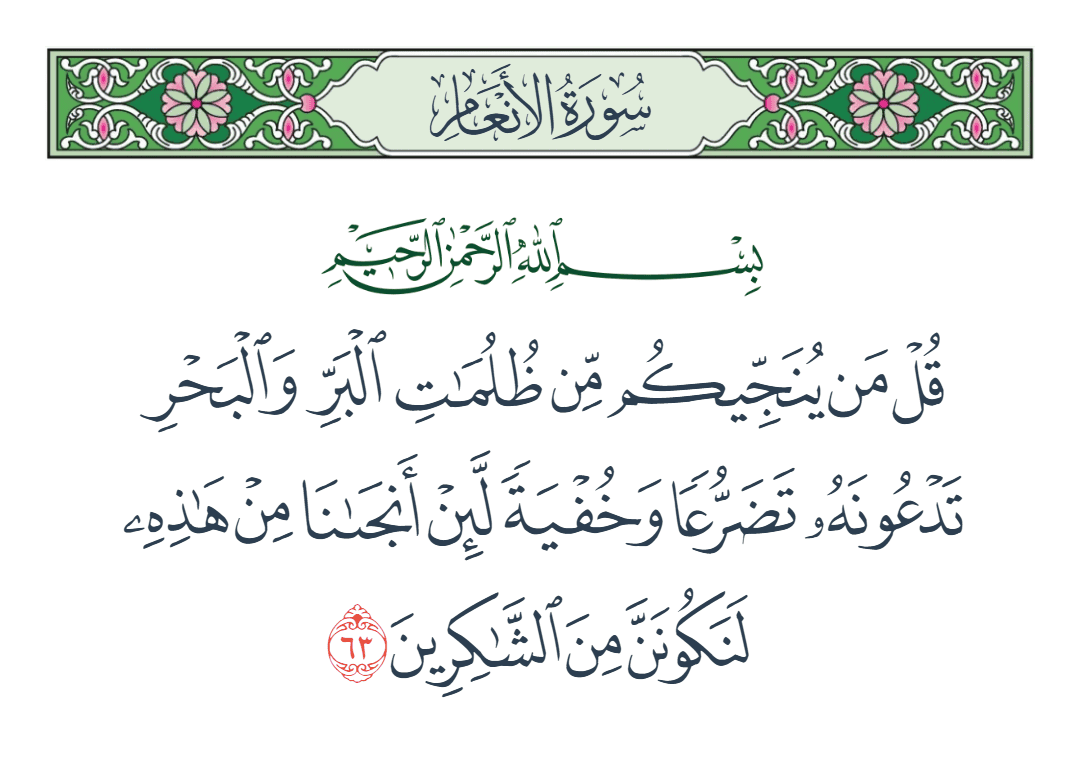 سُورَةُ الأَنْعَامِ
بِسْمِ ٱللَّهِ ٱلرَّحْمَٰنِ ٱلرَّحِيمِ
قُلْ مَن يُنَجِّيكُم مِّن ظُلُمَٰتِ ٱلْبَرِّ وَٱلْبَحْرِ
تَدْعُونَهُۥ تَضَرُّعًا وَخُفْيَةً لَّئِنْ أَنجَىٰنَا مِنْ هَٰذِهِۦ
لَنَكُونَنَّ مِنَ ٱلشَّٰكِرِينَ ٦٣